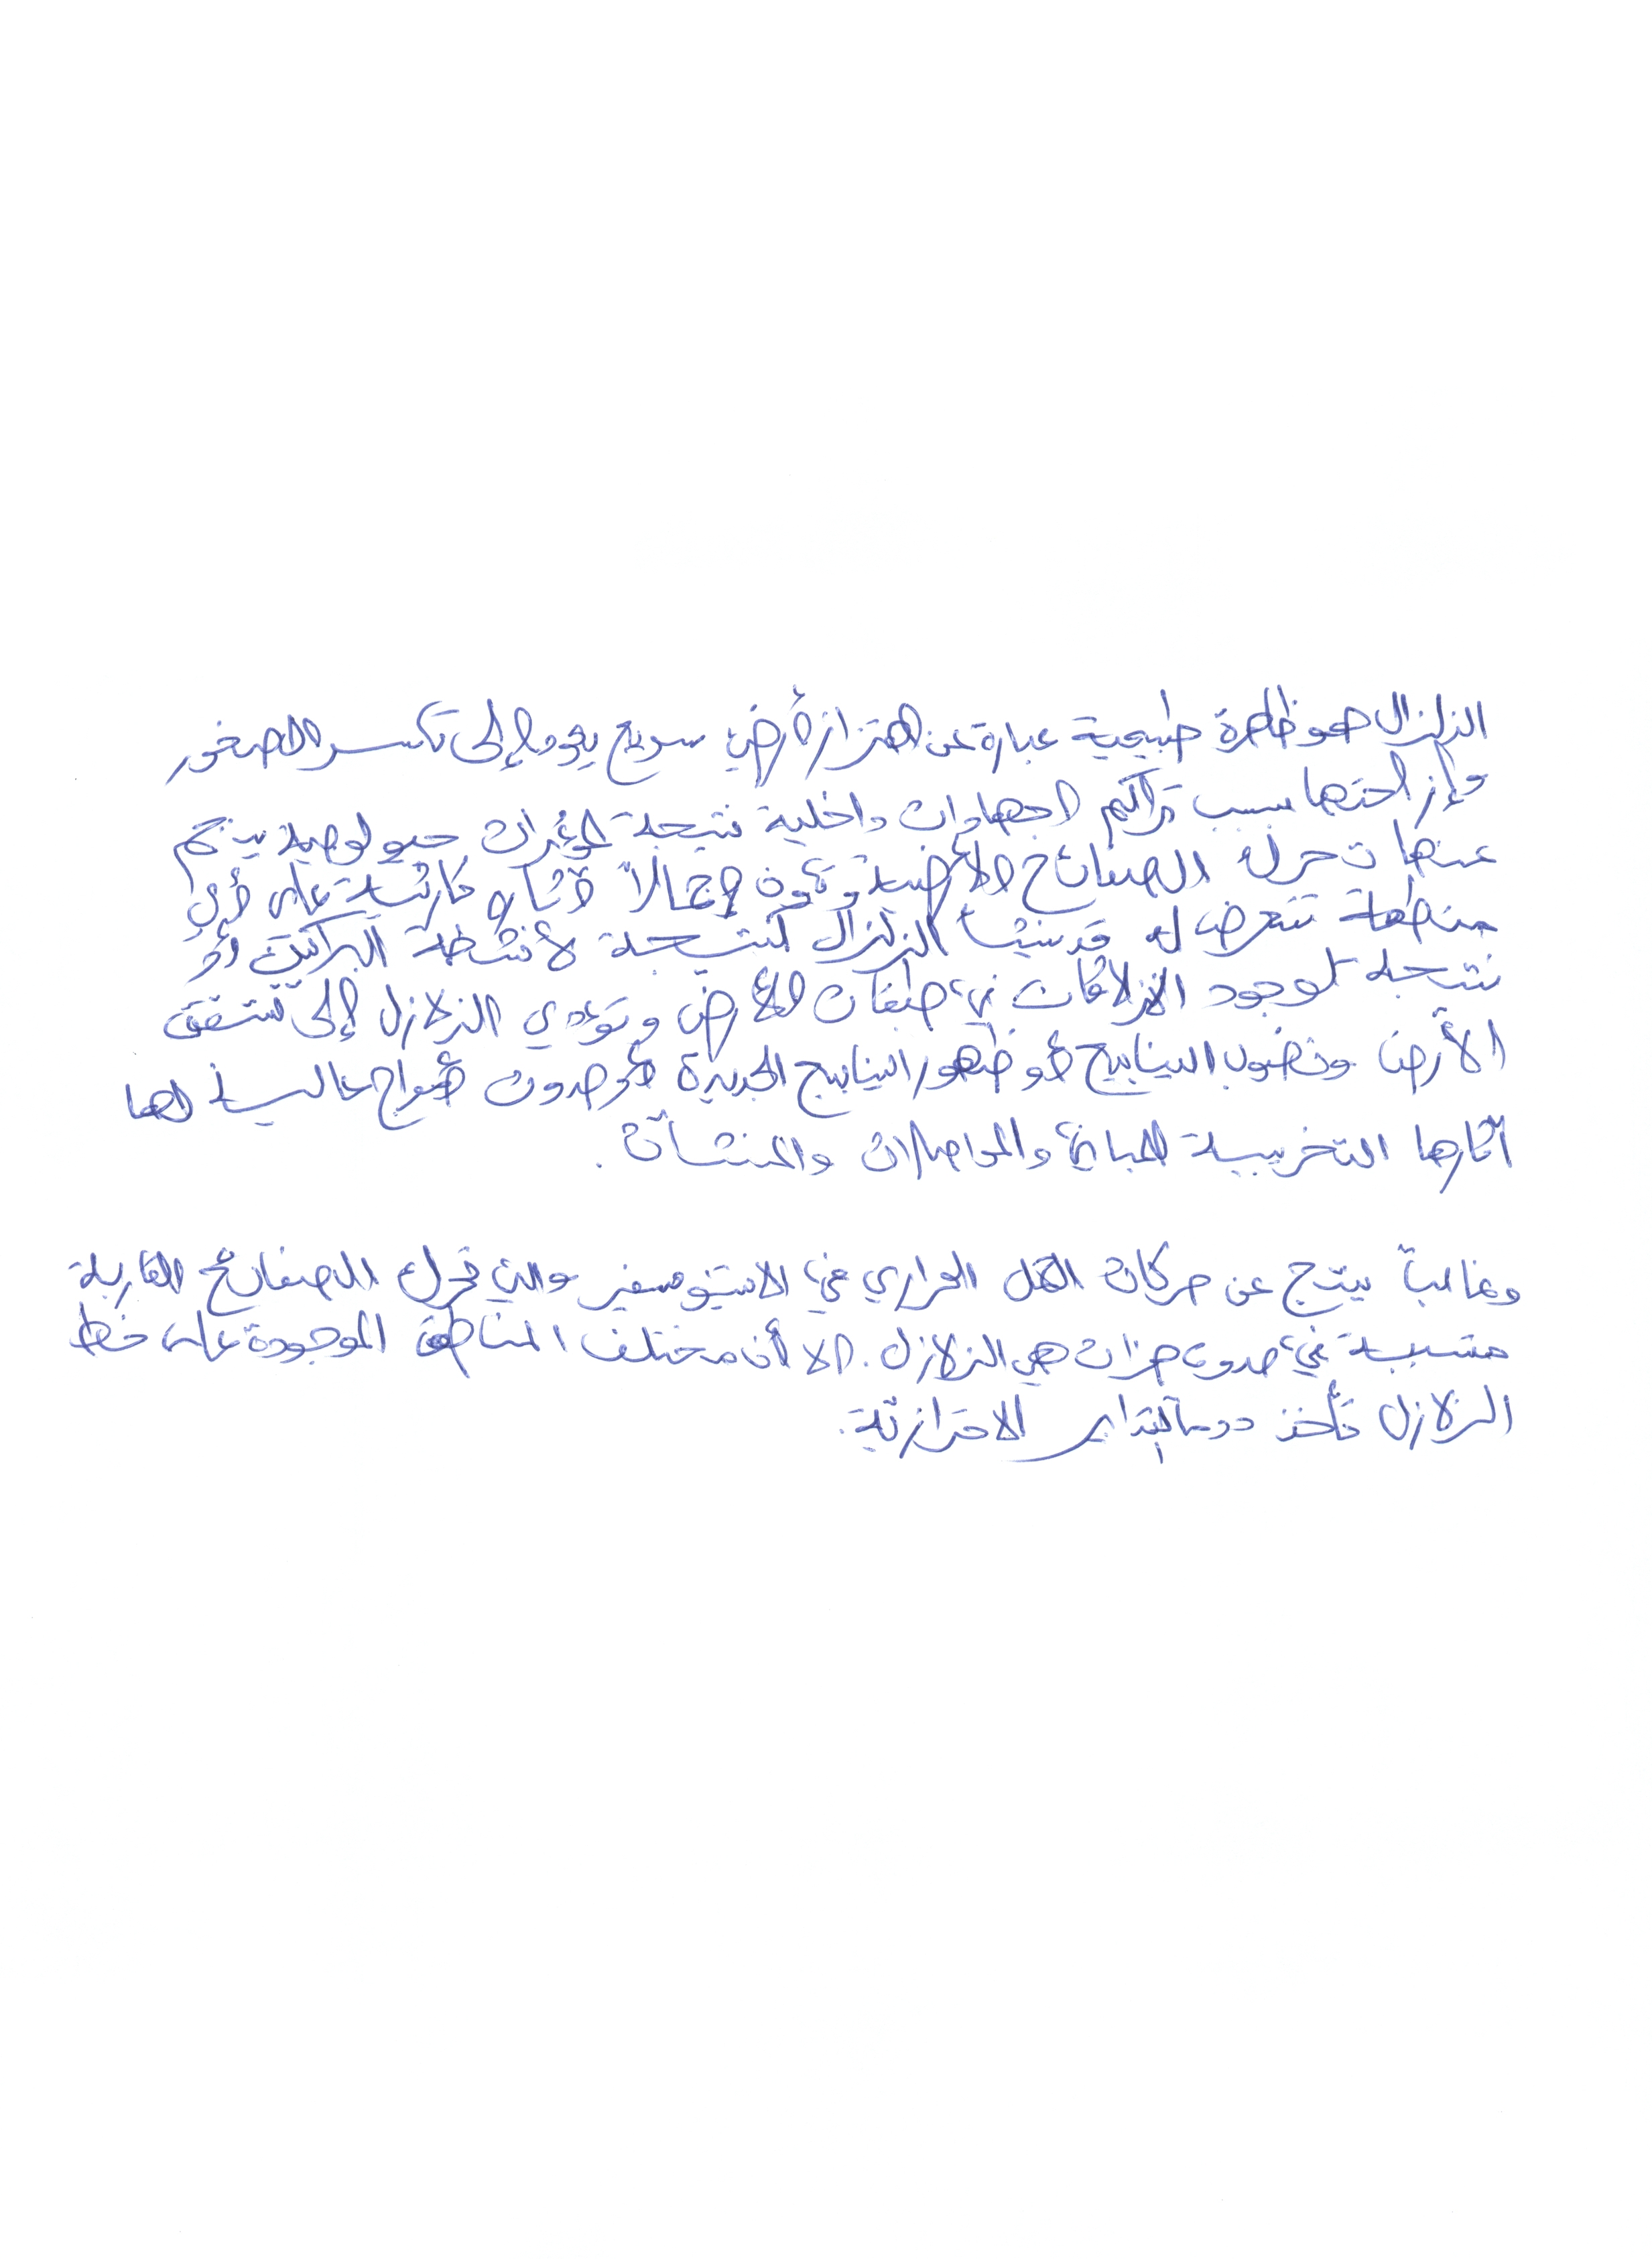 الزلزال هو ظاهرة طبيعية عبارة عن اهتزاز أرضي سريع يعود إلى تكسر الصخور
وإزاحتها بسبب تراكم اجهادات داخلية نتيجة لمؤثرات جيولوجية ينجم
عنها تحرك الصفائح الأرضية وتكون إجمالاً آثاره كارثية على أي
منطقة تتعرض له قد ينشأ الزلزال كنتيجة لأنشطة البراكين أو
نتيجة لوجود انزلاقات في طبقات الأرض وتؤدي الزلازل إلى تشقق
الأرض ونضوب الينابيع أو ظهور الينابيع الجديدة أو حدوث أمواج عالية لها
آثارها التخريبية للمباني والمواصلات والمنشآت.
وغالباً ينتج عن حركات الحمل الحراري في الاستينوسفير والتي تحرك الصفائح القارية
متسببة في حدوث هزات هي الزلازل. الا أن مختلف المناطق الموجودة على خط
الزلازل تأخذ دوما التدابير الاحترازية.